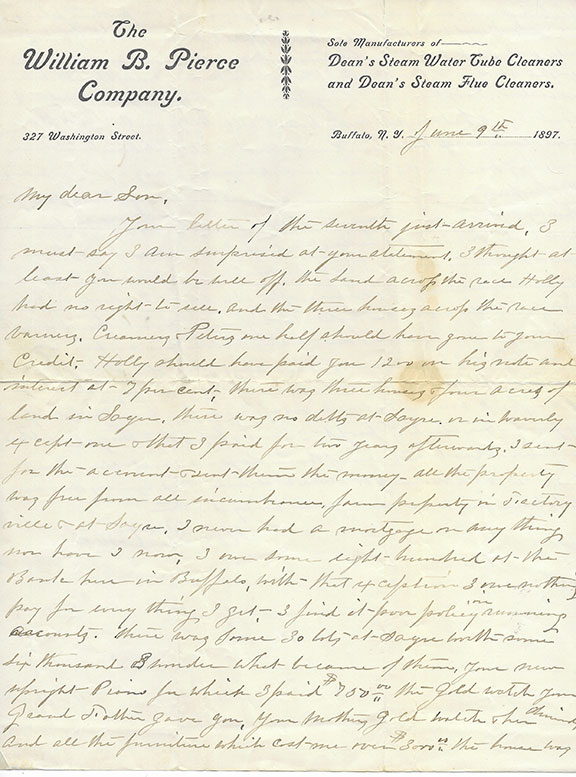 The
William B. Pierce
Company.
327 Washington Street.
Sole Manufacturers of
Dean's Steam Water Tube Cleaners
and Dean's Steam Flue Cleaners.
Buffalo, N. Y. June 9th 1897.
My dear Son,
Your letter of the seventh just arrived, I
must say I am surprised at your statement. I thought at
least you would be well off. the land across the race Holly
had no right to see. and the three houses across the race
Creamery Peters one half should have gone to your
Credit. Holly should have paid you 1200 on his note and
interest at 7 per cent, there was three houses & four acres of
land in Sayre. there was no debts at Sayre. or in Waverly
except one & that I paid for two years afterwards. I sent
for the account & sent them the money - all the property
was free from all incumbrance. farm property in Factory
ville & at Sayre. I never had a mortgage on any thing
nor have I now, I owe some eight hundred at the
Bank here in Buffalo, with that exception I owe nothing
pay for every thing I get - I find it poor policy in running
accounts. there was some 30 lots at Sayre worth some
six thousand I wonder what became of them, your new
upright Piano for which I paid $750.00 the Gold watch your
Grand Father gave you, your Mothers Gold watch & her
and all the furniture which cost me over $3000.00 the house was